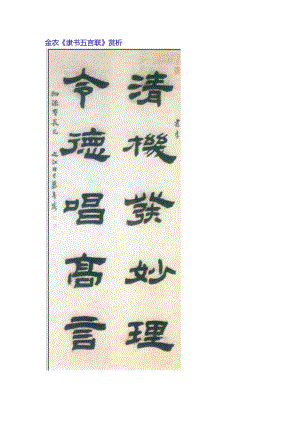 金农《隶书五言联》赏析
清機發妙理
令德唱高言